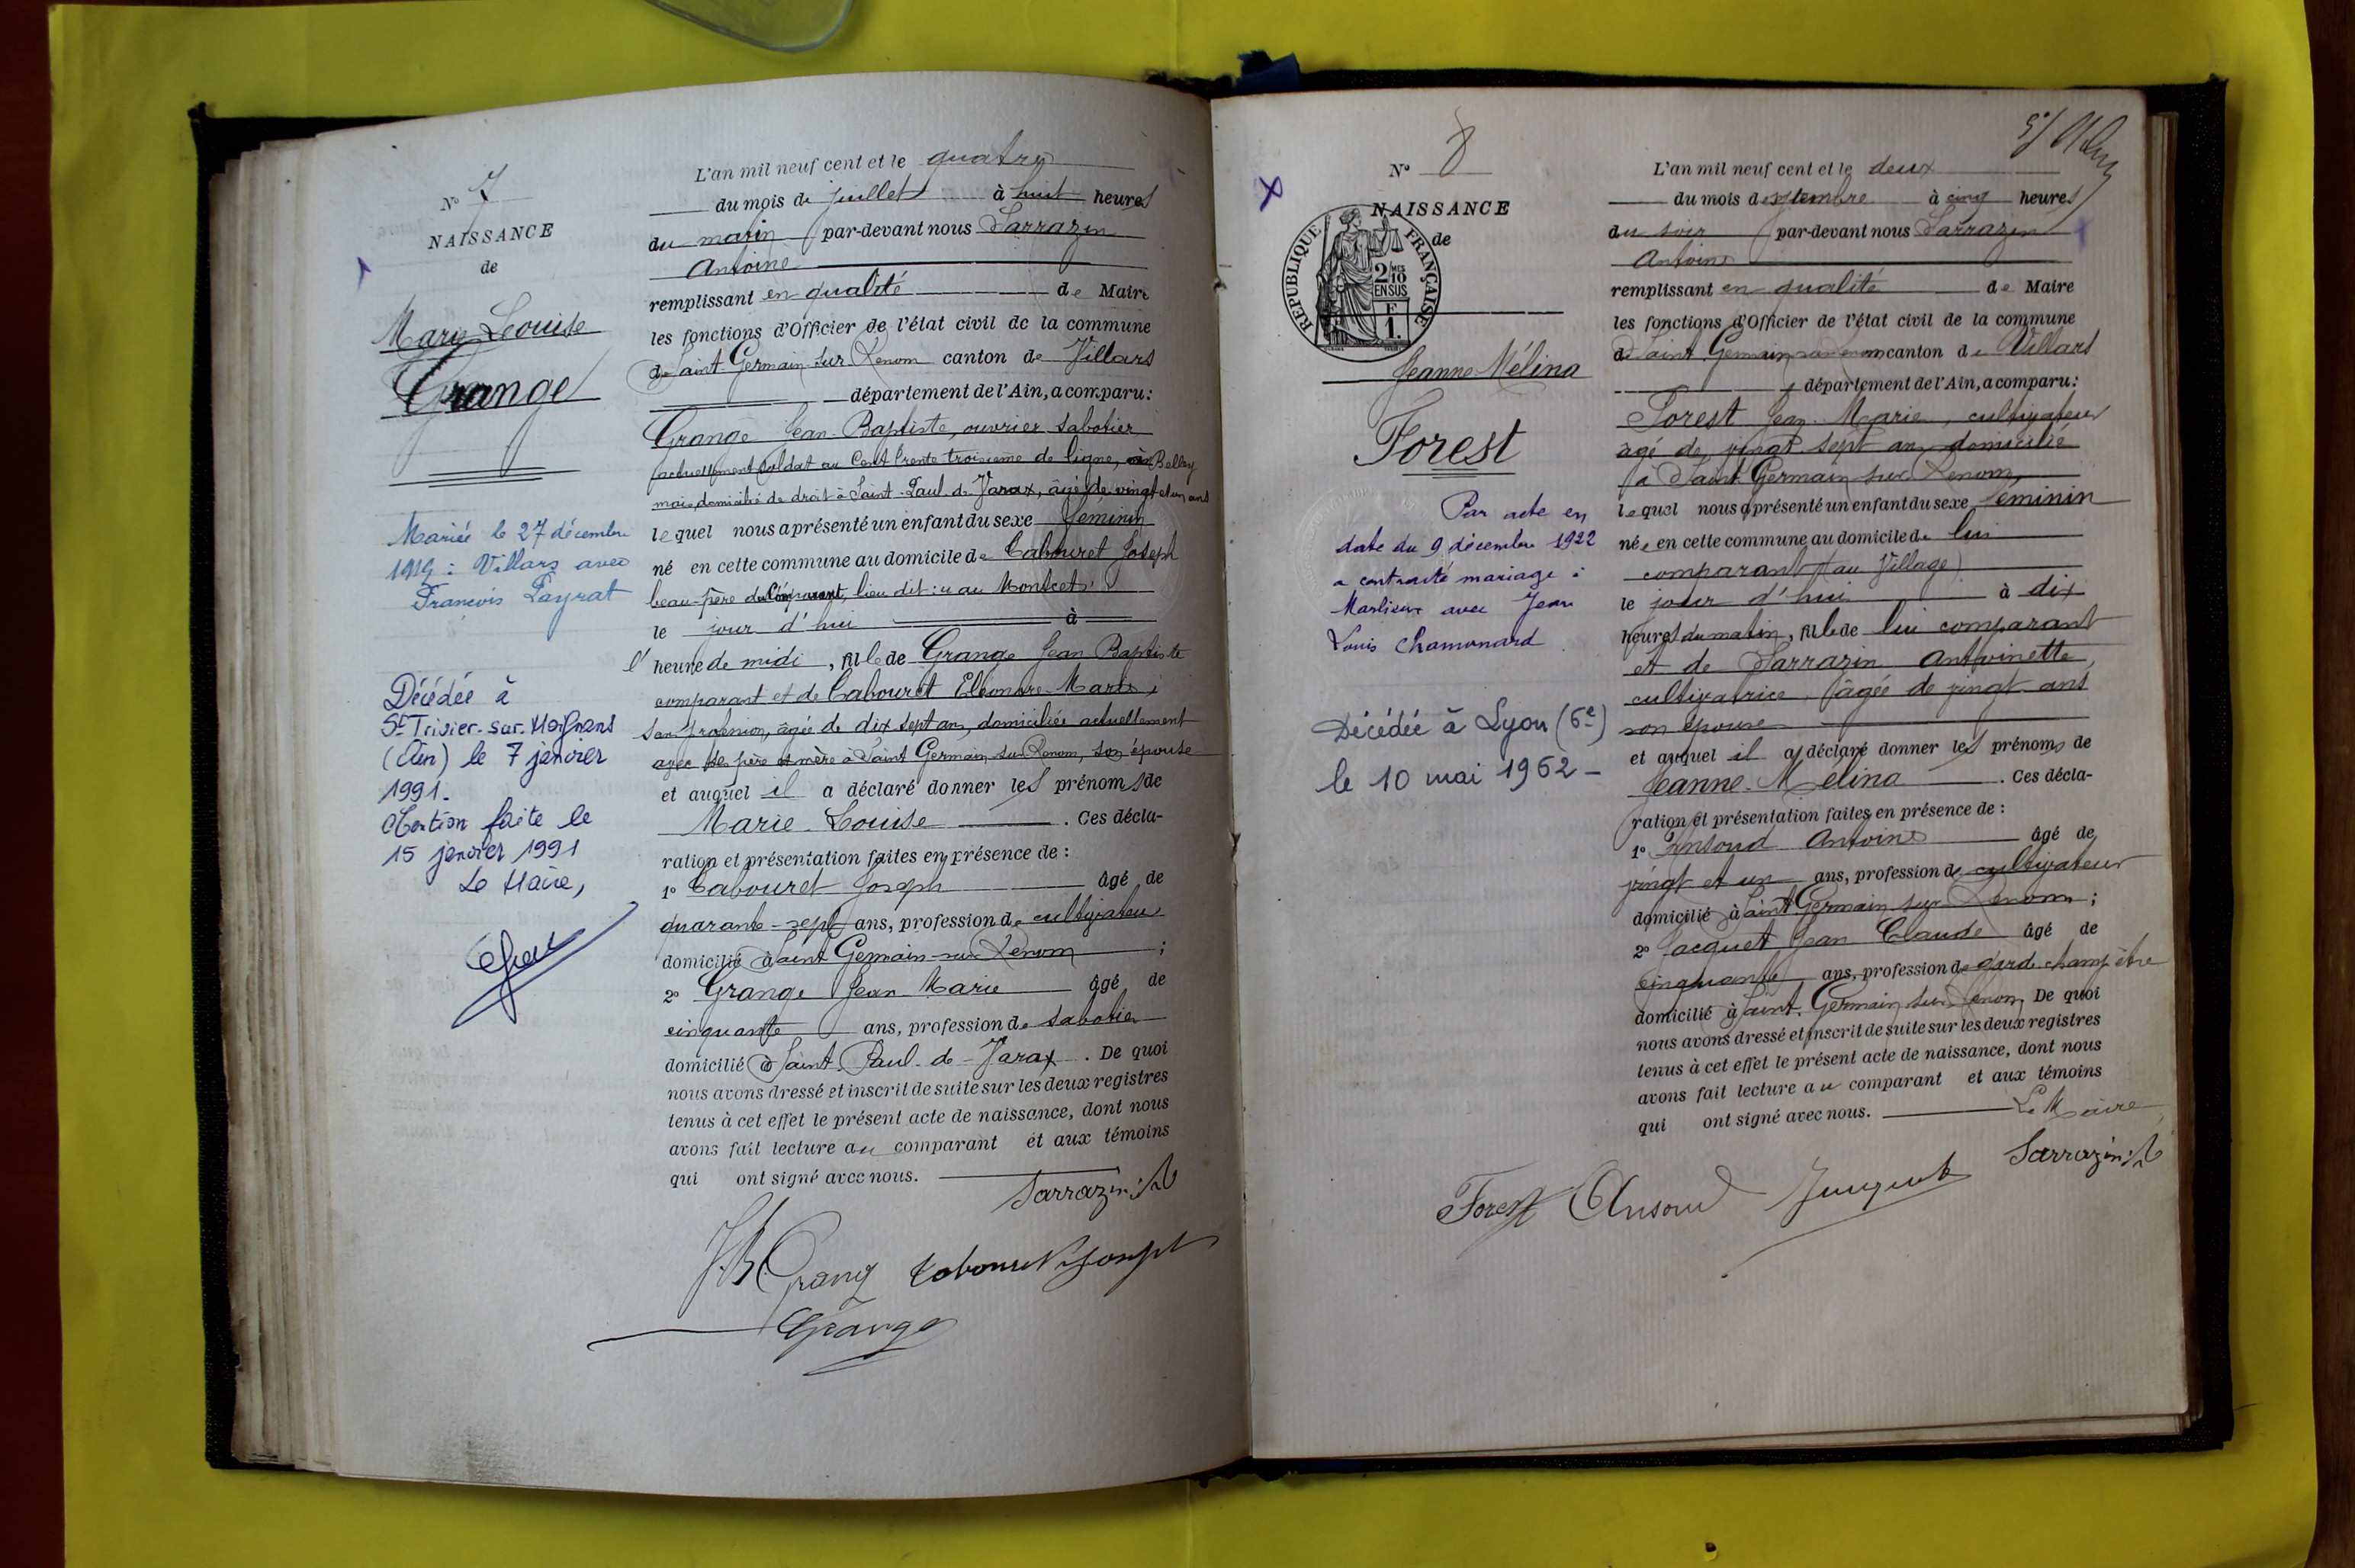 N° 7
NAISSANCE
de
Marie Louise
Grange
Mariée le 27 décembre
1919 à Villars avec
François Payrat
Décédée à
St Trivier-sur-Moignans
(Ain) le 7 janvier
1991.
Mention faite le
15 janvier 1991
Le Maire,
L'an mil neuf cent et le quatre
du mois de juillet à huit heures
du matin par-devant nous Sarrazin
Antoine
remplissant en qualité de Maire
les fonctions d'Officier de l'état civil de la commune
de Saint Germain-sur-Renom canton de Villars
département de l'Ain, a comparu:
Grange Jean-Baptiste, ouvrier sabotier
actuellement soldat au Cent trente troisième de ligne, à Belley
mais domicilié de droit à Saint-Paul-de-Varax, âgé de vingt et un ans
lequel nous a présenté un enfant du sexe féminin
né en cette commune au domicile de Cabouret Joseph
beau-père du Comparant, lieu dit: « au Montcet »
le jour d'hui à
l'heure de midi, fille de Grange Jean Baptiste
comparant et de Cabouret Eléonore-Marie,
sans profession, âgée de dix sept ans, domiciliée actuellement
avec ses père et mère à Saint Germain-sur-Renom, son épouse
et auquel il a déclaré donner les prénoms de
Marie-Louise . Ces décla-
ration et présentation faites en présence de :
1° Cabouret Joseph âgé de
quarante-sept ans, profession de cultivateur
domicilié à Saint Germain-sur-Renom ;
2° Grange Jean-Marie âgé de
cinquante ans, profession de sabotier
domicilié à Saint-Paul-de-Varax. De quoi
nous avons dressé et inscrit de suite sur les deux registres
tenus à cet effet le présent acte de naissance, dont nous
avons fait lecture au comparant et aux témoins
qui ont signé avec nous.
Sarrazin
J.B. Grange Cabouret Joseph
Grange
N° 8
NAISSANCE
de
RÉPUBLIQUE FRANÇAISE
2/10 MES
EN SUS
F
1.
Jeanne Mélina
Forest
Par acte en
date du 9 décembre 1922
a contracté mariage à
Marlieux avec Jean
Louis Chamonard
Décédée à Lyon (6e)
le 10 mai 1962 -
L'an mil neuf cent et le deux
du mois de septembre à cinq heures
du soir par-devant nous Sarrazin
Antoine
remplissant en qualité de Maire
les fonctions d'Officier de l'état civil de la commune
de Saint Germain-sur-Renom canton de Villars
département de l'Ain, a comparu:
Forest Jean-Marie, cultivateur
âgé de vingt sept ans domicilié
à Saint Germain-sur-Renom,
lequel nous a présenté un enfant du sexe féminin
née en cette commune au domicile de lui
comparant (au Village)
le jour d'hui à dix
heures du matin, fille de lui comparant
et de Sarrazin Antoinette,
cultivatrice, âgée de vingt ans
son épouse
et auquel il a déclaré donner les prénoms de
Jeanne-Mélina . Ces décla-
ration et présentation faites en présence de :
1° Ansoud Antoine âgé de
vingt et un ans, profession de cultivateur
domicilié à Saint Germain sur Renom ;
2° Jacquet Jean Claude âgé de
cinquante ans, profession de garde champêtre
domicilié à Saint Germain sur Renom. De quoi
nous avons dressé et inscrit de suite sur les deux registres
tenus à cet effet le présent acte de naissance, dont nous
avons fait lecture au comparant et aux témoins
qui ont signé avec nous. Le Maire
Sarrazin
Forest Ansoud Jacquet